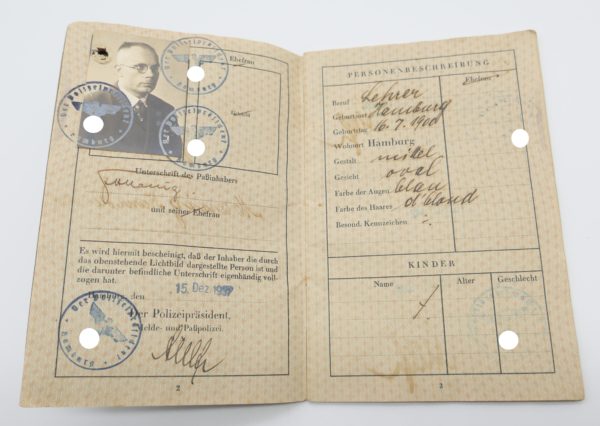 Ehefrau
Der Polizeipräsident
Hamburg
Unterschrift des Paßinhabers
und seiner Ehefrau
Es wird hiermit bescheinigt, daß der Inhaber die durch
das obenstehende Lichtbild dargestellte Person ist und
die darunter befindliche Unterschrift eigenhändig voll-
zogen hat.
Hamburg den 15. Dez. 1937
Der Polizeipräsident.
Melde- und Paßpolizei.
Der Polizeipräsident
Hamburg
2
PERSONENBESCHREIBUNG
Ehefrau
Beruf Lehrer
Geburtsort Hamburg
Geburtstag 16.7.1900
Wohnort Hamburg
Gestalt mittel
Gesicht oval
Farbe der Augen blau
Farbe des Haares d'blond
Besond. Kennzeichen
KINDER
Name Alter Geschlecht
3